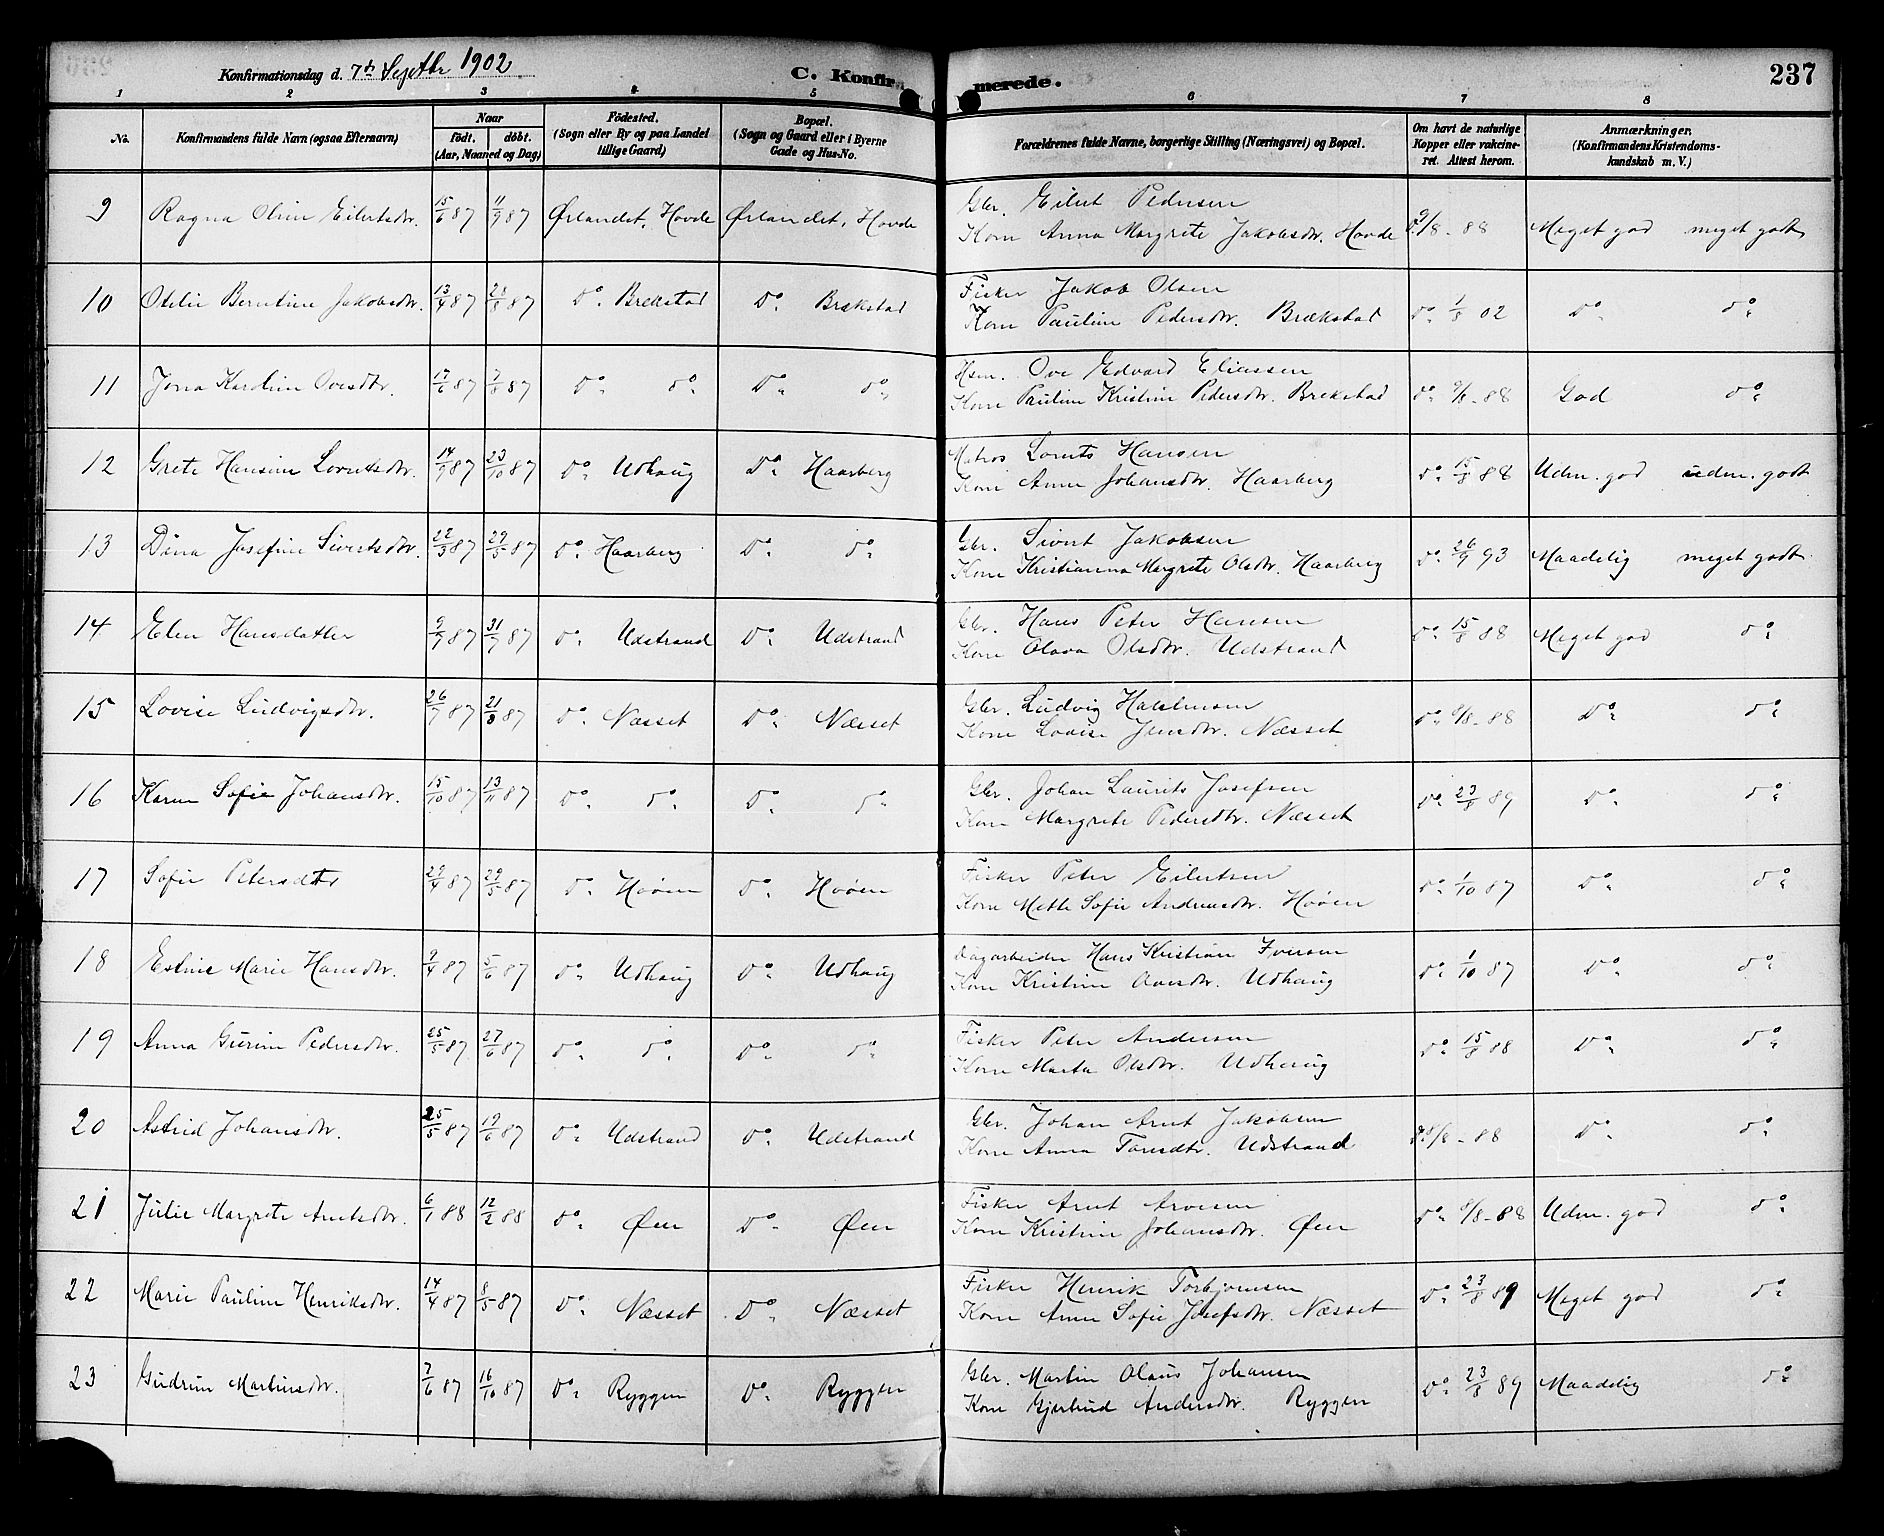 Konfirmationsdag d. 7de Septbr 1902 C. Konfirmerede. 237
1 2 3 4 5 6 7 8
No. Konfirmandens fulde Navn (ogsaa Efternavn) Naar födt. döbt. (Aar, Maaned og Dag) Födested. (Sogn eller By og paa Landet tillige Gaard) Bopæl. (Sogn og Gaard eller i Byerne Gade og Hus-No. Forældrenes fulde Navne, borgerlige Stilling (Næringsvei) og Bopæl. Om havt de naturlige Kopper eller vakcineret. Attest herom. Anmærkninger. (Konfirmandens Kristendomskundskab m. V.)
9 Ragna Oline Eilertsdtr. 15/6 87 11/9 87 Ørlandet, Hovde Ørlandet, Hovde Gbr. Eilert Pedersen
Kone Anna Margrete Jakobsdtr. Hovde 9/8 - 88 Meget god meget godt
10 Otelie Berntine Jakobsdtr. 13/4 87 28/8 87 Do Brekstad Do Brækstad Fisker Jakob Olsen
Kone Pauline Pedersdtr. Brækstad do 1/8 02 Do do
11 Jona Karoline Ovesdtr. 17/6 87 7/8 87 Do do Do do Hsm. Ove Edvard Eliassen
Kone Pauline Kristine Pedersdtr. Brekstad do 9/8 - 88 God do
12 Grete Hansine Lorntsdtr. 14/9 87 23/10 87 Do Udhaug Do Haarberg Matros Lornts Hansen
Kone Anne Johansdtr. Haarberg do 15/8 88 Udm. god udm. godt
13 Dina Josefine Sivertsdtr. 22/3 87 29/5 87 Do Haarberg Do do Gbr. Sivert Jakobsen
Kone Kristianna Margrete Olsdtr. Haarberg do 26/9 93 Maadelig meget godt
14 Elen Hansdatter 9/7 87 31/7 87 do Udstrand Do Udstrand Gbr. Hans Peter Hansen
Kone Olava Olsdtr. Udstrand do 15/8 88 Meget god do
15 Lovise Ludvigsdtr. 26/7 87 21/8 87 do Næsset Do Næsset Gbr. Ludvig
Kone Lovise Jensdtr. Næsset do 9/8 - 88 Do do
16 Karen Sofie Johansdtr. 15/10 87 13/11 87 Do do Do do Gbr. Johan Laurits Josefsen
Kone Margrete Pedersdtr. Næsset do 23/8 89 Do do
17 Sofie Petersdtr 29/4 87 29/5 87 do Hoøen Do Hoøen Fisker Peter Eilertsen
Kone Mette Sofie Andreasdtr. Hoøen do 1/10 87 Do do
18 Estine Marie Hansdtr. 9/4 87 5/6 87 do Udhaug Do Udhaug Dagarbeider Hans Kristian Iversen
Kone Kristine Ovesdtr. Udhaug do 1/10 87 Do do
19 Anna Gurine Pedersdtr. 25/5 87 27/6 87 do do Do do Fisker Peter Andersen
Kone Marta Olsdtr. Udhaug do 15/8 88 Do do
20 Astrid Johansdtr. 25/5 87 19/6 87 do Udstrand Do Udstrand Gbr. Johan Arnt Jakobsen
Kone Anna Udstrand 9/8 - 88 Do do
21 Julie Margrete Arntsdtr. 6/1 88 12/2 88 do Øen Do Øen Fisker Arnt Arvesen
Kone Kristine Johansdtr. Øen do 9/8 - 88 Udm. god do
22 Marie Pauline Henriksdtr. 14/4 87 8/5 87 Do Næsset Do Næsset Fisker Henrik Torbjörnsen
Kone Anne Sofie Josefsdtr. Næsset Do 23/8 89 Meget god do
23 Gudrun Martinsdtr. 7/6 87 16/10 87 Do Ryggen Do Ryggen Gbr. Martin Olaus Johansen
Kone Gjertrud Andersdtr. Ryggen Do 23/8 89 Maadelig do